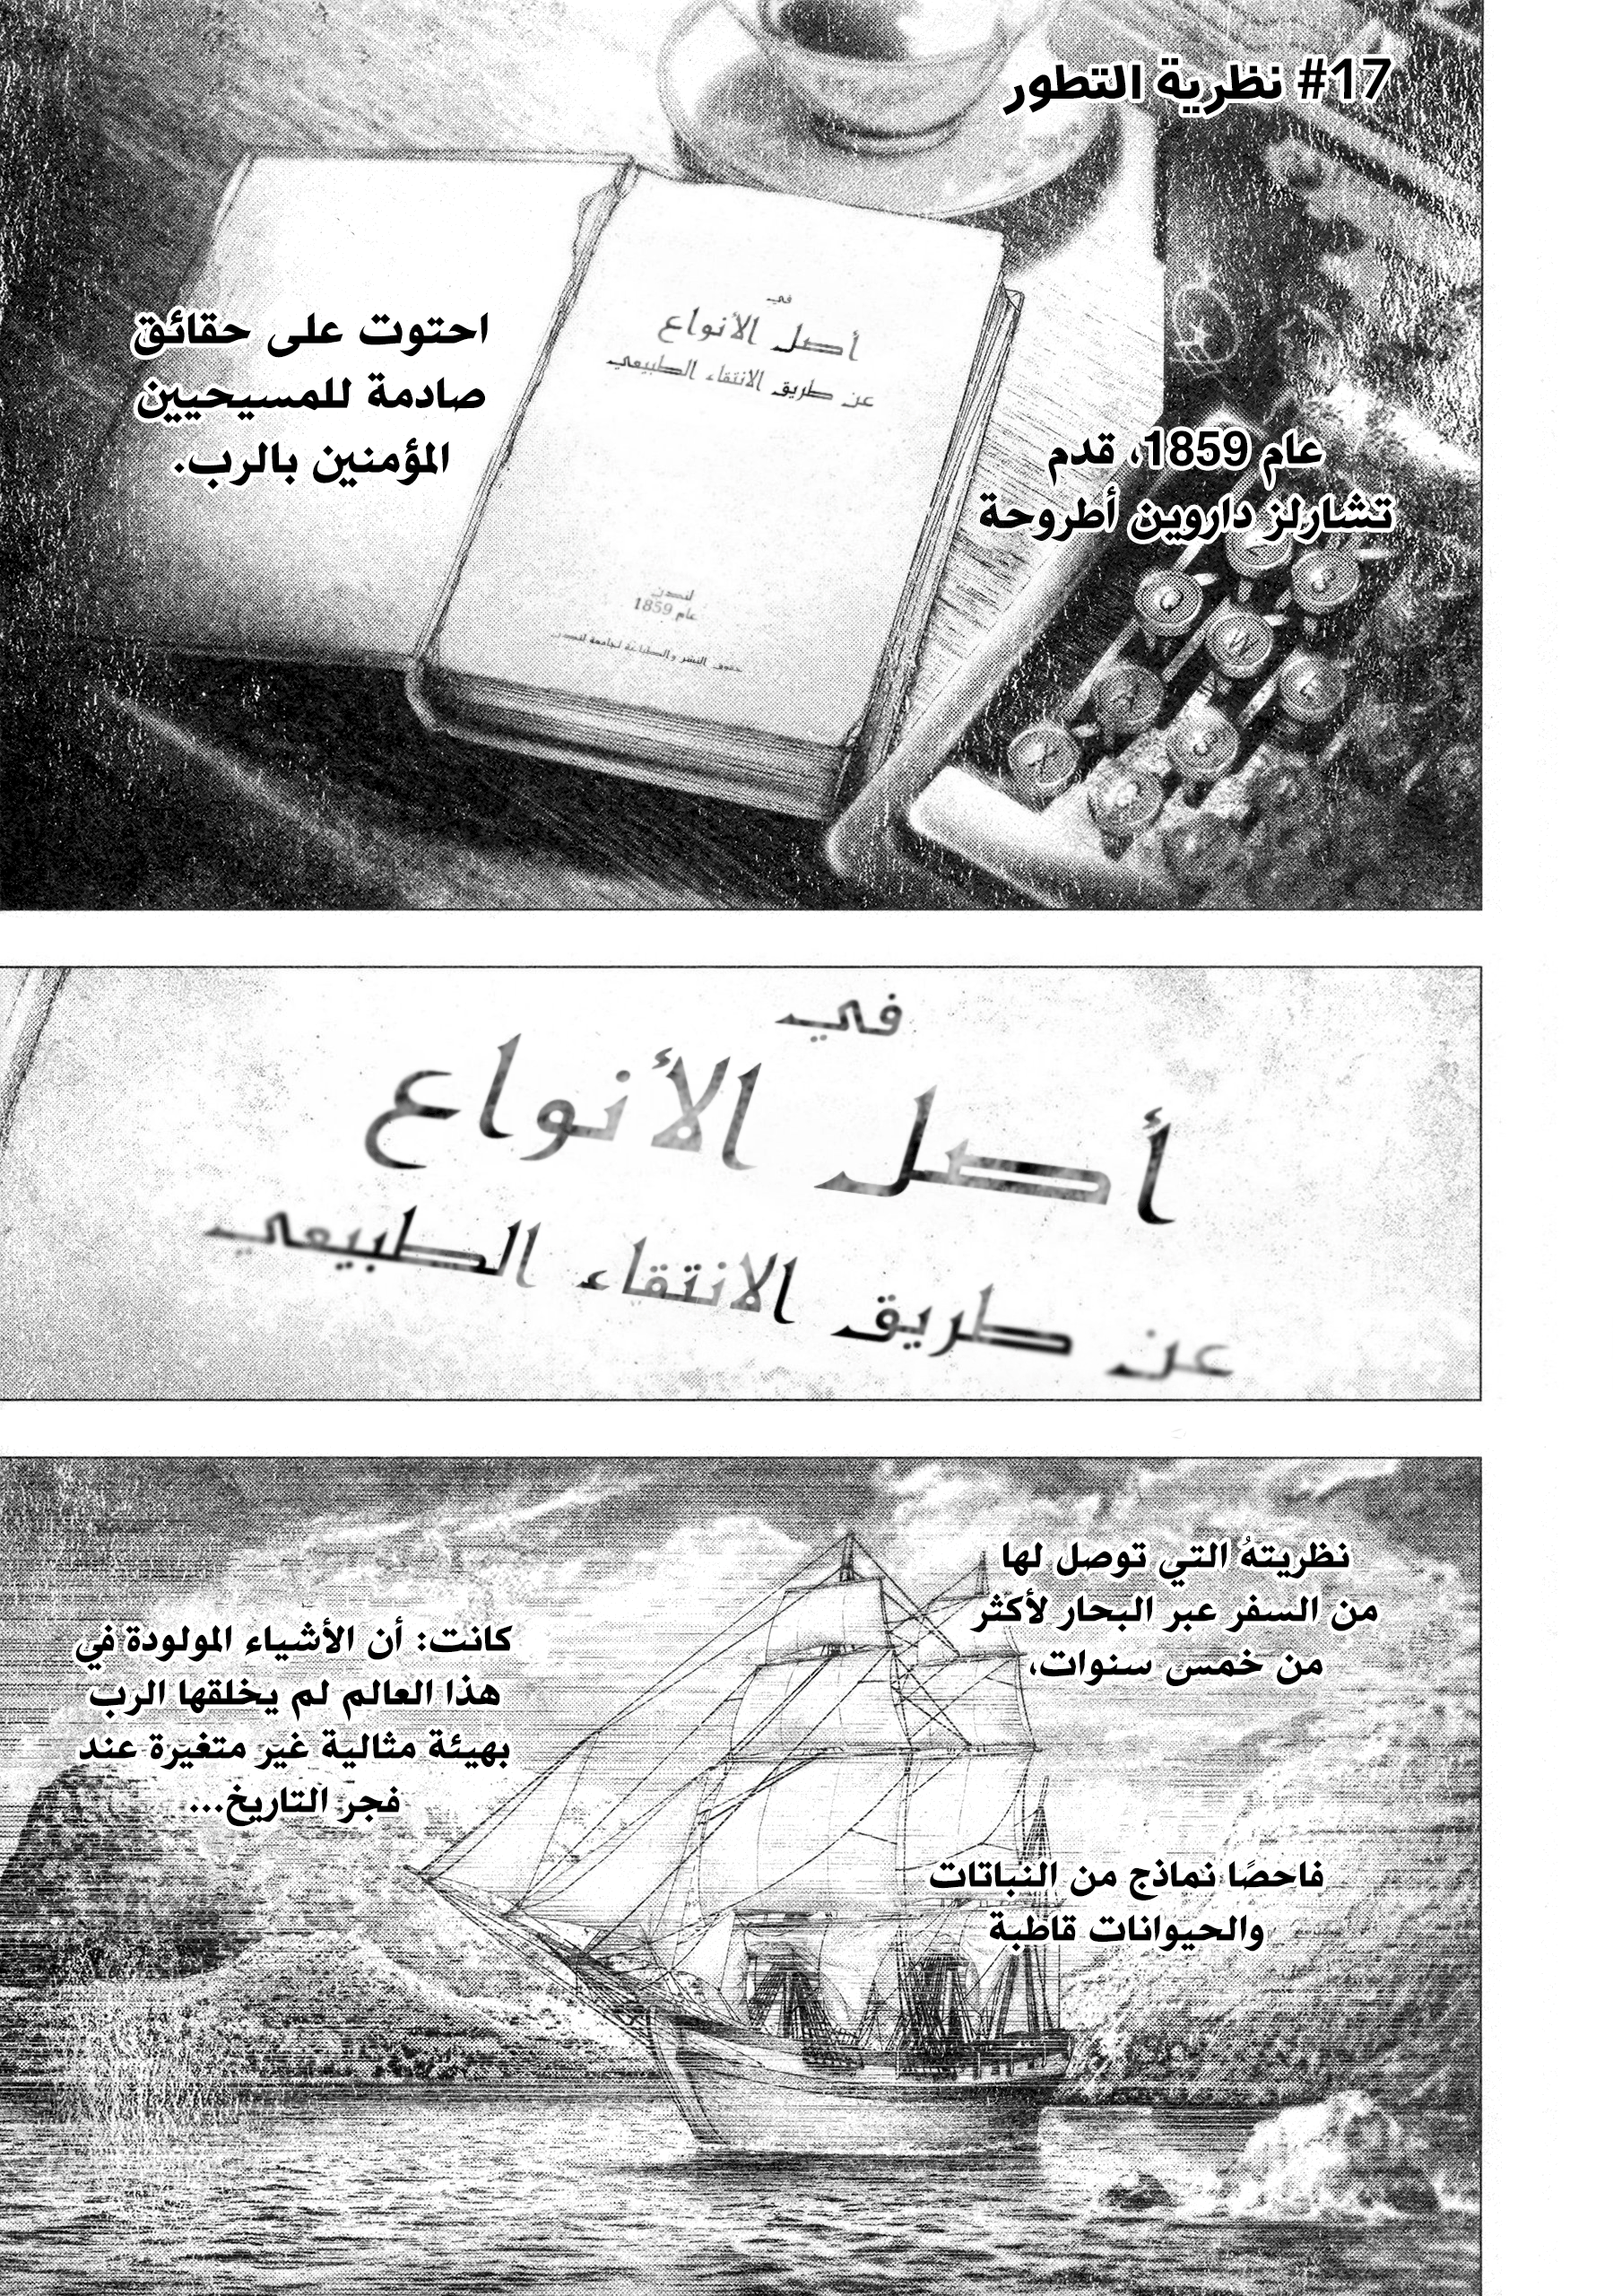 #17 نظرية التطور
عام 1859، قدم
تشارلز داروين أطروحة
احتوت على حقائق
صادمة للمسيحيين
المؤمنين بالرب.
في
أصل الأنواع
عن طريق الانتقاء الطبيعي
لندن
عام 1859
حقوق النشر والطباعة لجامعة لندن
في
أصل الأنواع
عن طريق الانتقاء الطبيعي
نظريتهُ التي توصل لها
من السفر عبر البحار لأكثر
من خمس سنوات،
فاحصًا نماذج من النباتات
والحيوانات قاطبة
كانت: أن الأشياء المولودة في
هذا العالم لم يخلقها الرب
بهيئة مثالية غير متغيرة عند
فجر التاريخ...